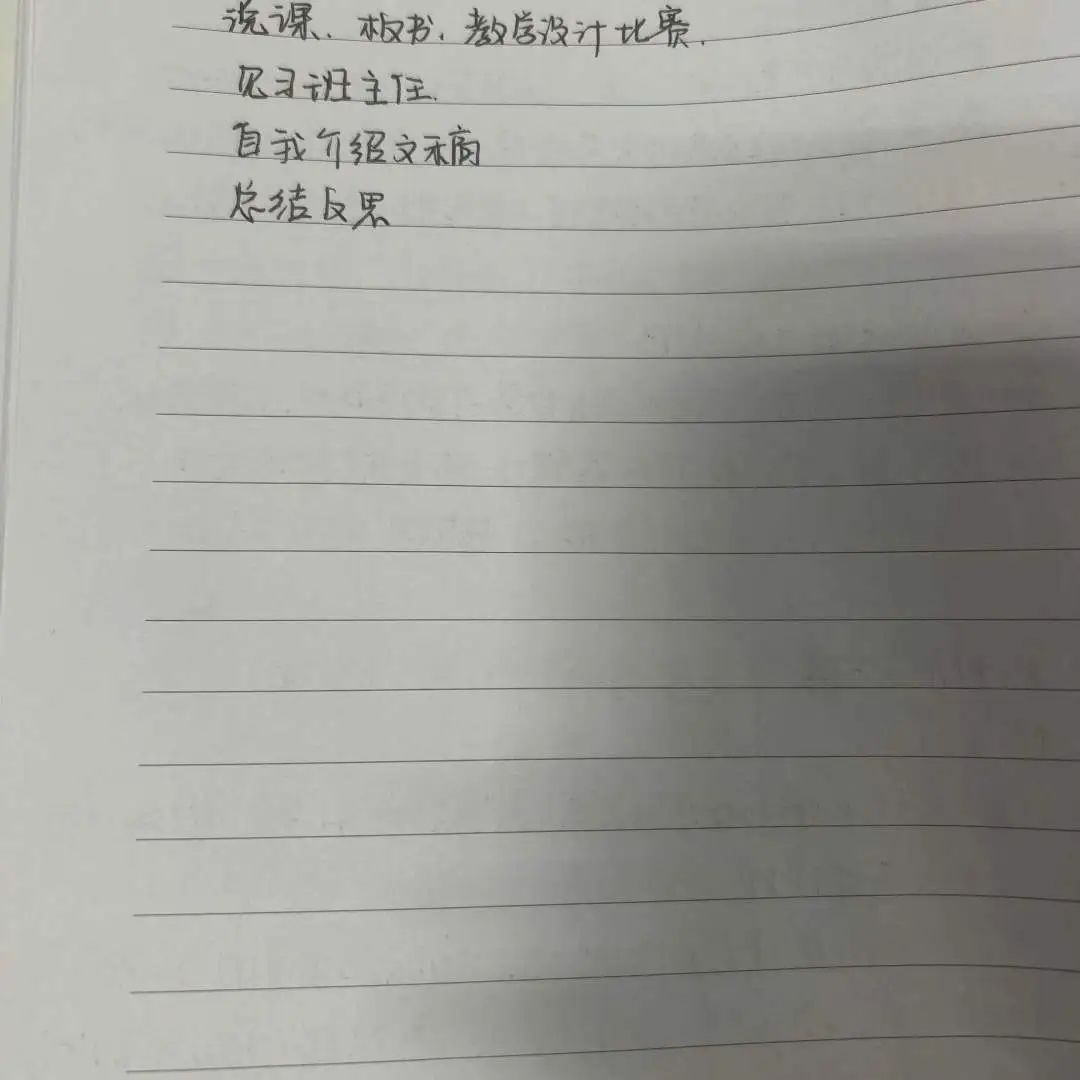 说课、板书、教学设计比赛.
见习班主任.
自我介绍文稿
总结反思